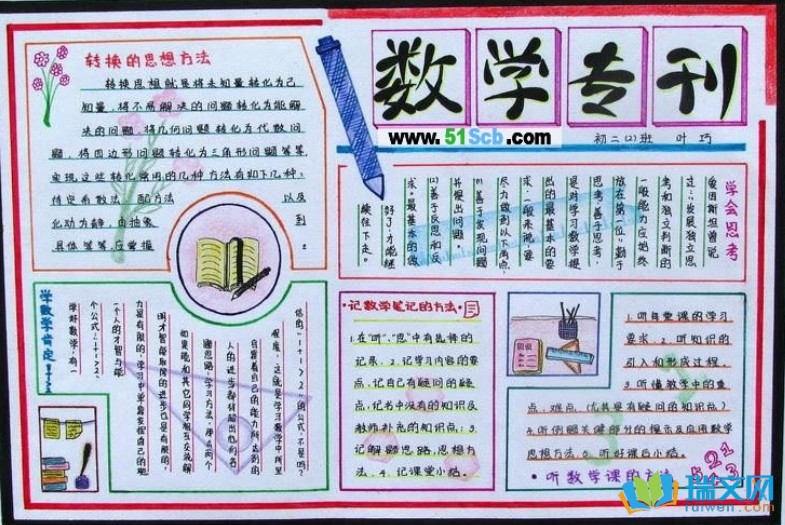 数学专刊
www.51Scb.com
初二(2)班 叶巧
转换的思想方法
转换思想就是将未知量转化为已
知量,将不易解决的问题转化为能解
决的问题,将几何问题转化为代数问
题,将四边形问题转化为三角形问题等等
实现这些转化常用的几种方法有如下几种:
待定系数法、配方法 以及
化动为静、由抽象 到
具体等等,应掌握 。
学会思考
爱因斯坦曾说
过:"发展独立思
考和独立判断的
一般能力应始终
放在第一位"勤于
思考,善于思考,
是对学习数学提
出的最基本的要
求。一般来说,要
尽力做到以下两点。
(1)善于发现问题
并提出问题。
(2)善于反思和反
求。最基本的做
好了,才能继
续往下走。
学数学肯定1+1>2
学好数学,有一
个公式:"1+1>2"
一个人的才智与能
力是有限的,学习中单靠发挥自己的聪
明才智能取得的进步也是有限的,
如果能和其它同学相互交流解
题思路,学习方法,那么两个
人的进步都将超出他们各
自靠着自己的能力所达到的
程度,这就是学习数学中所
"1+1>2"的公式,不是吗?
·记数学笔记的方法·
1.在"听"、"思"中有选择的
记录、2.记学习内容的要
点、记自己有疑问的疑
点、记书中没有的知识及
教师补充的知识点:3.
记解题思路、思想方
法、4.记课堂小结。
1.听每堂课的学习
要求、2.听知识的
引入和形成过程、
3.听懂教学中的重
点、难点(尤其是有疑问的知识点)
4.听例题关键部分的提示及应用数学
思想方法、5.听好课后小结。
·听数学课的方法·
瑞文网
ruiwen.com